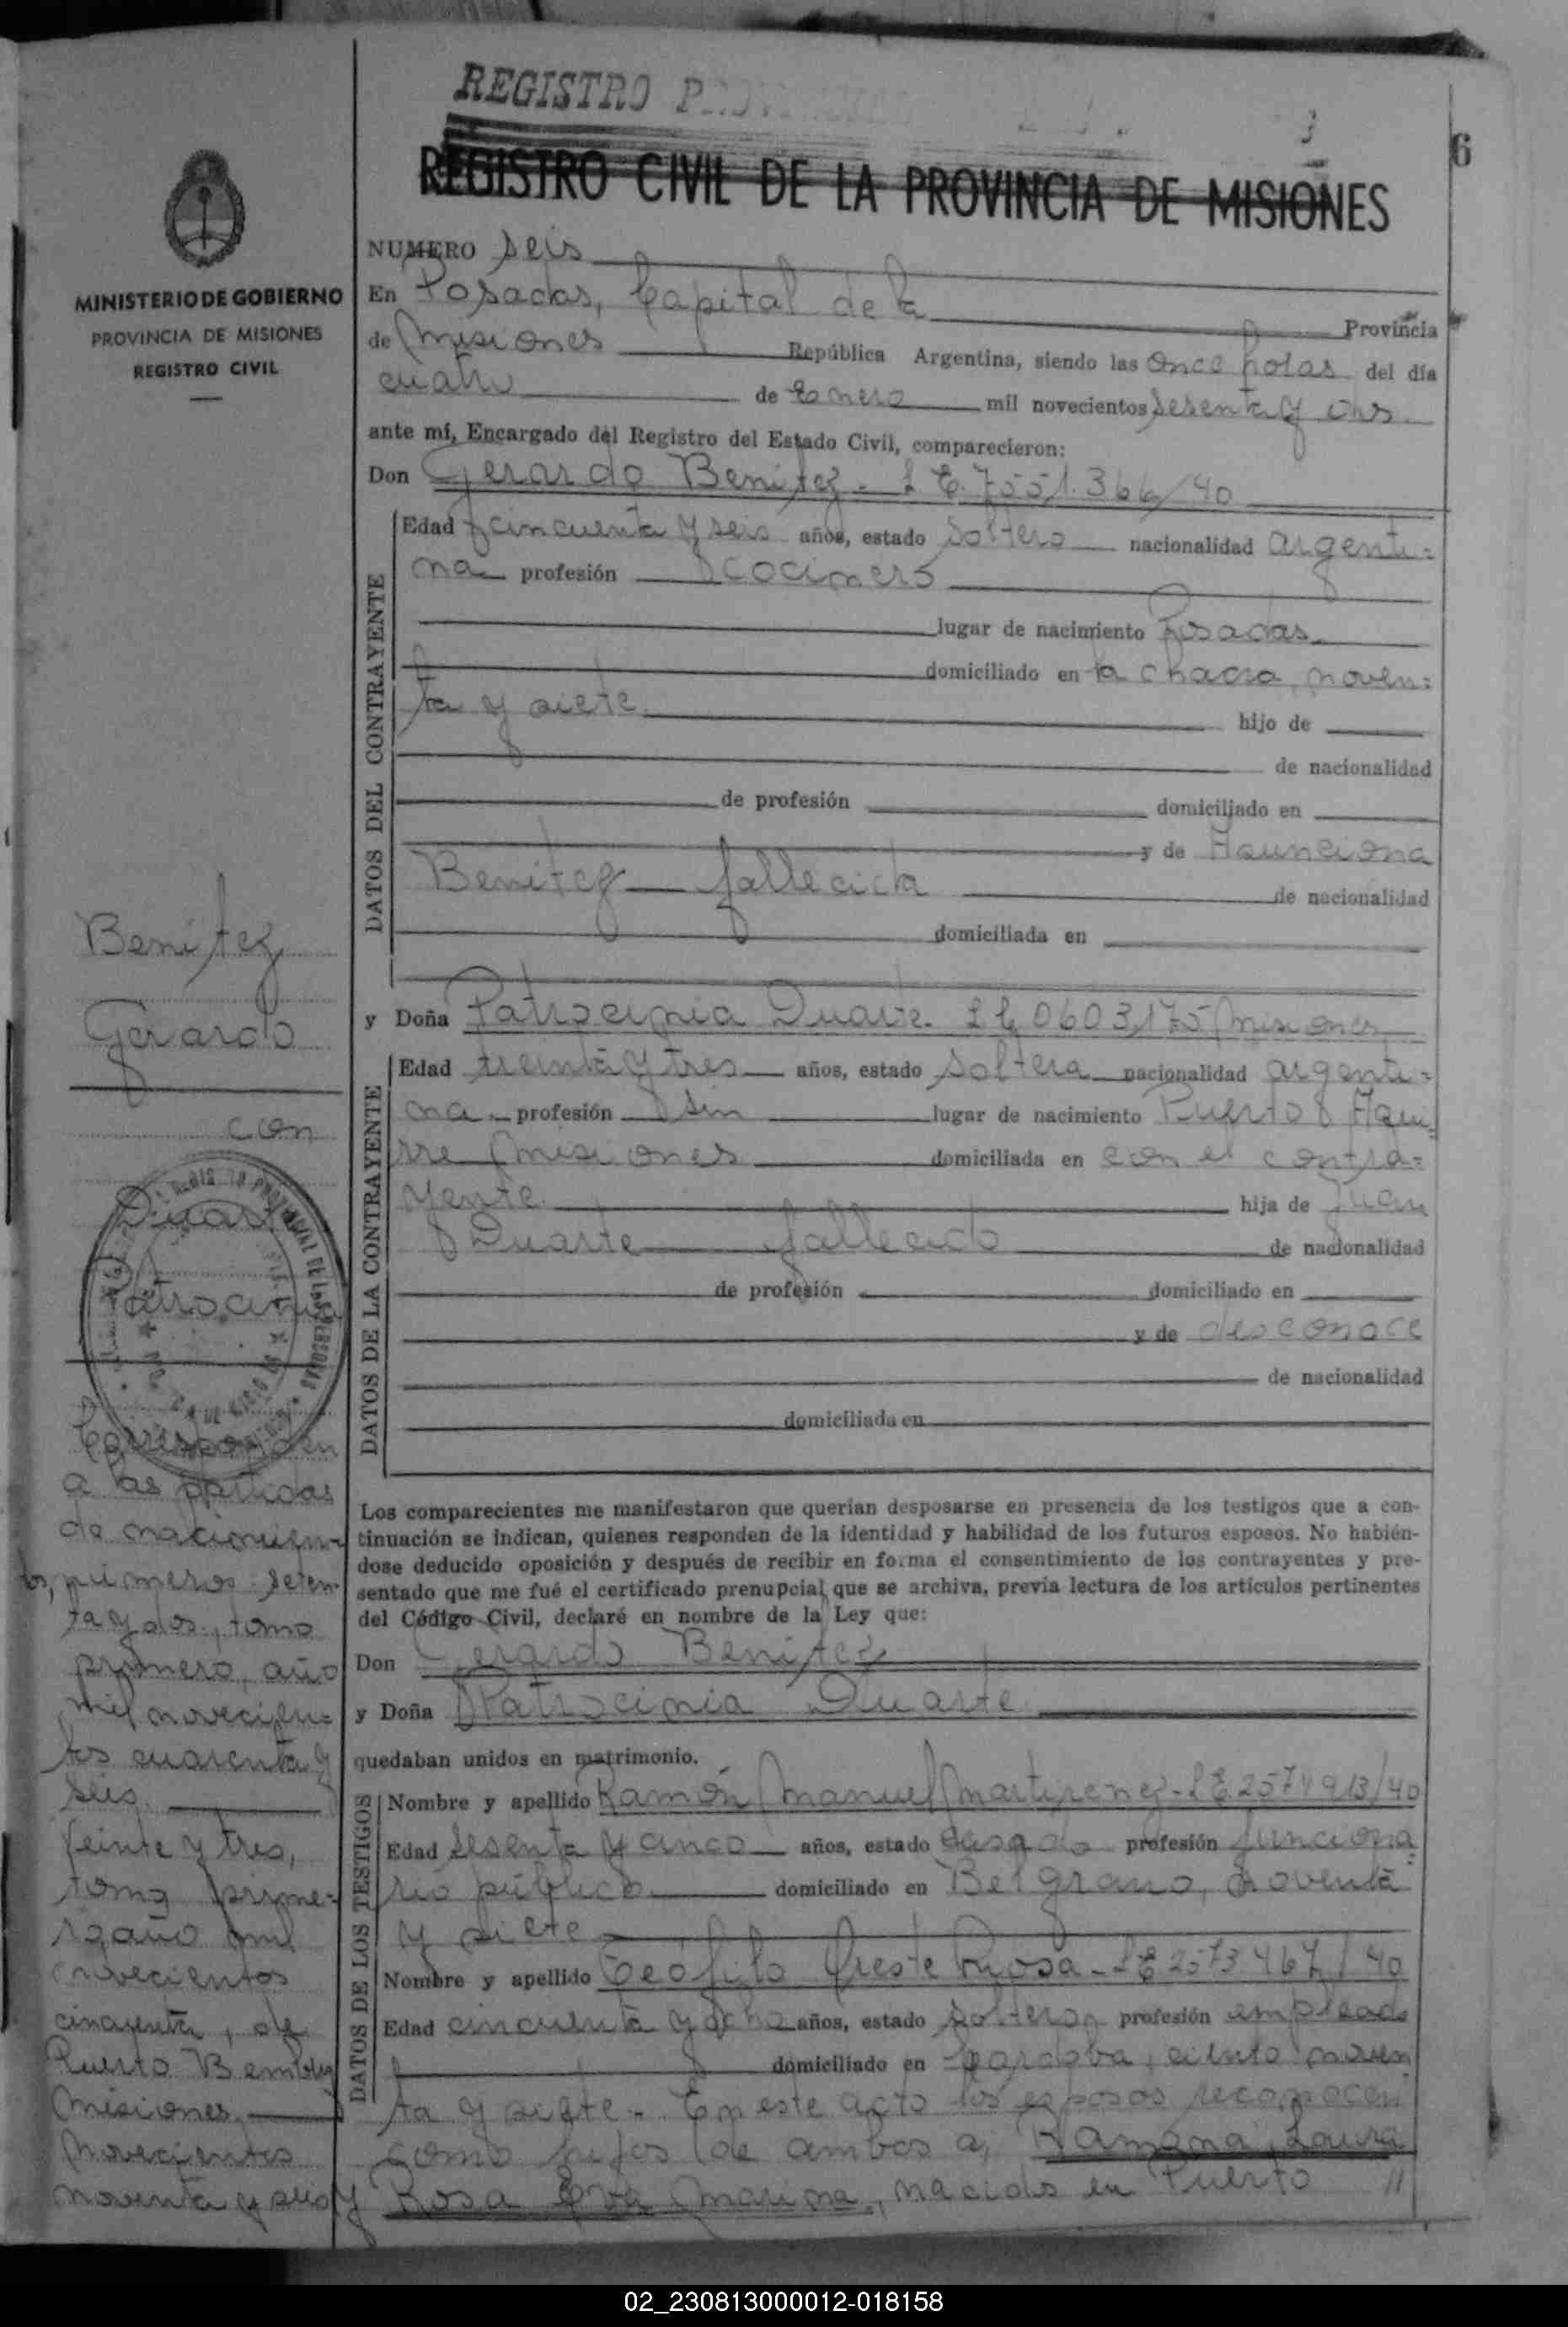 REGISTRO
REGISTRO CIVIL DE LA PROVINCIA DE MISIONES
6
MINISTERIO DE GOBIERNO
PROVINCIA DE MISIONES
REGISTRO CIVIL
NUMERO seis
En Posadas, Capital de la Provincia
de Misiones República Argentina, siendo las once horas del día
cuatro de Enero mil novecientos sesenta y
ante mí, Encargado del Registro del Estado Civil, comparecieron:
Don Gerardo Benítez - L E. 7551.366/40
DATOS DEL CONTRAYENTE
Edad cincuenta y seis años, estado soltero nacionalidad argenti=
na profesión cocinero
lugar de nacimiento Posadas
domiciliado en la chacra noven=
ta y siete hijo de
de nacionalidad
de profesión domiciliado en
y de Asunciona
Benítez fallecida de nacionalidad
domiciliada en
y Doña Patrocinia Duarte. L C 0603,175 Misiones
DATOS DE LA CONTRAYENTE
Edad treinta y tres años, estado soltera nacionalidad argenti=
na profesión sin lugar de nacimiento Puerto Agui=
rre Misiones domiciliada en con el contra=
yente. hija de Juan
Duarte fallecido de nacionalidad
de profesión domiciliado en
y de desconoce
de nacionalidad
domiciliada en
Los comparecientes me manifestaron que querían desposarse en presencia de los testigos que a con-
tinuación se indican, quienes responden de la identidad y habilidad de los futuros esposos. No habién-
dose deducido oposición y después de recibir en forma el consentimiento de los contrayentes y pre-
sentado que me fué el certificado prenupcial que se archiva, previa lectura de los artículos pertinentes
del Código Civil, declaré en nombre de la Ley que:
Don Gerardo Benítez
y Doña Patrocinia Duarte
quedaban unidos en matrimonio.
DATOS DE LOS TESTIGOS
Nombre y apellido Ramón Manuel Martirenez - L E 2574913/40
Edad sesenta y cinco años, estado casado profesión funciona=
rio público domiciliado en Belgrano, noventa
y siete
Nombre y apellido Teófilo Oreste Rosa - L E 2573467/40
Edad cincuenta y ocho años, estado soltero profesión empleado
domiciliado en Córdoba, ciento noven
ta y siete - En este acto los esposos reconocen
como hijos de ambos a; Ramona Laura
y Rosa Eva Marina, nacidos en Puerto //
Benítez
Gerardo
con
Duarte
Patrocinia
Corresponden
a las partidas
de nacimien=
tos, números seten=
ta y dos, tomo
primero, año
mil novecien=
tos cuarenta y
seis.
veinte y tres,
tomo prime=
ro año mil
novecientos
cincuenta, de
Puerto Bemberg
Misiones
Novecientos
noventa y seis
02_230813000012-018158